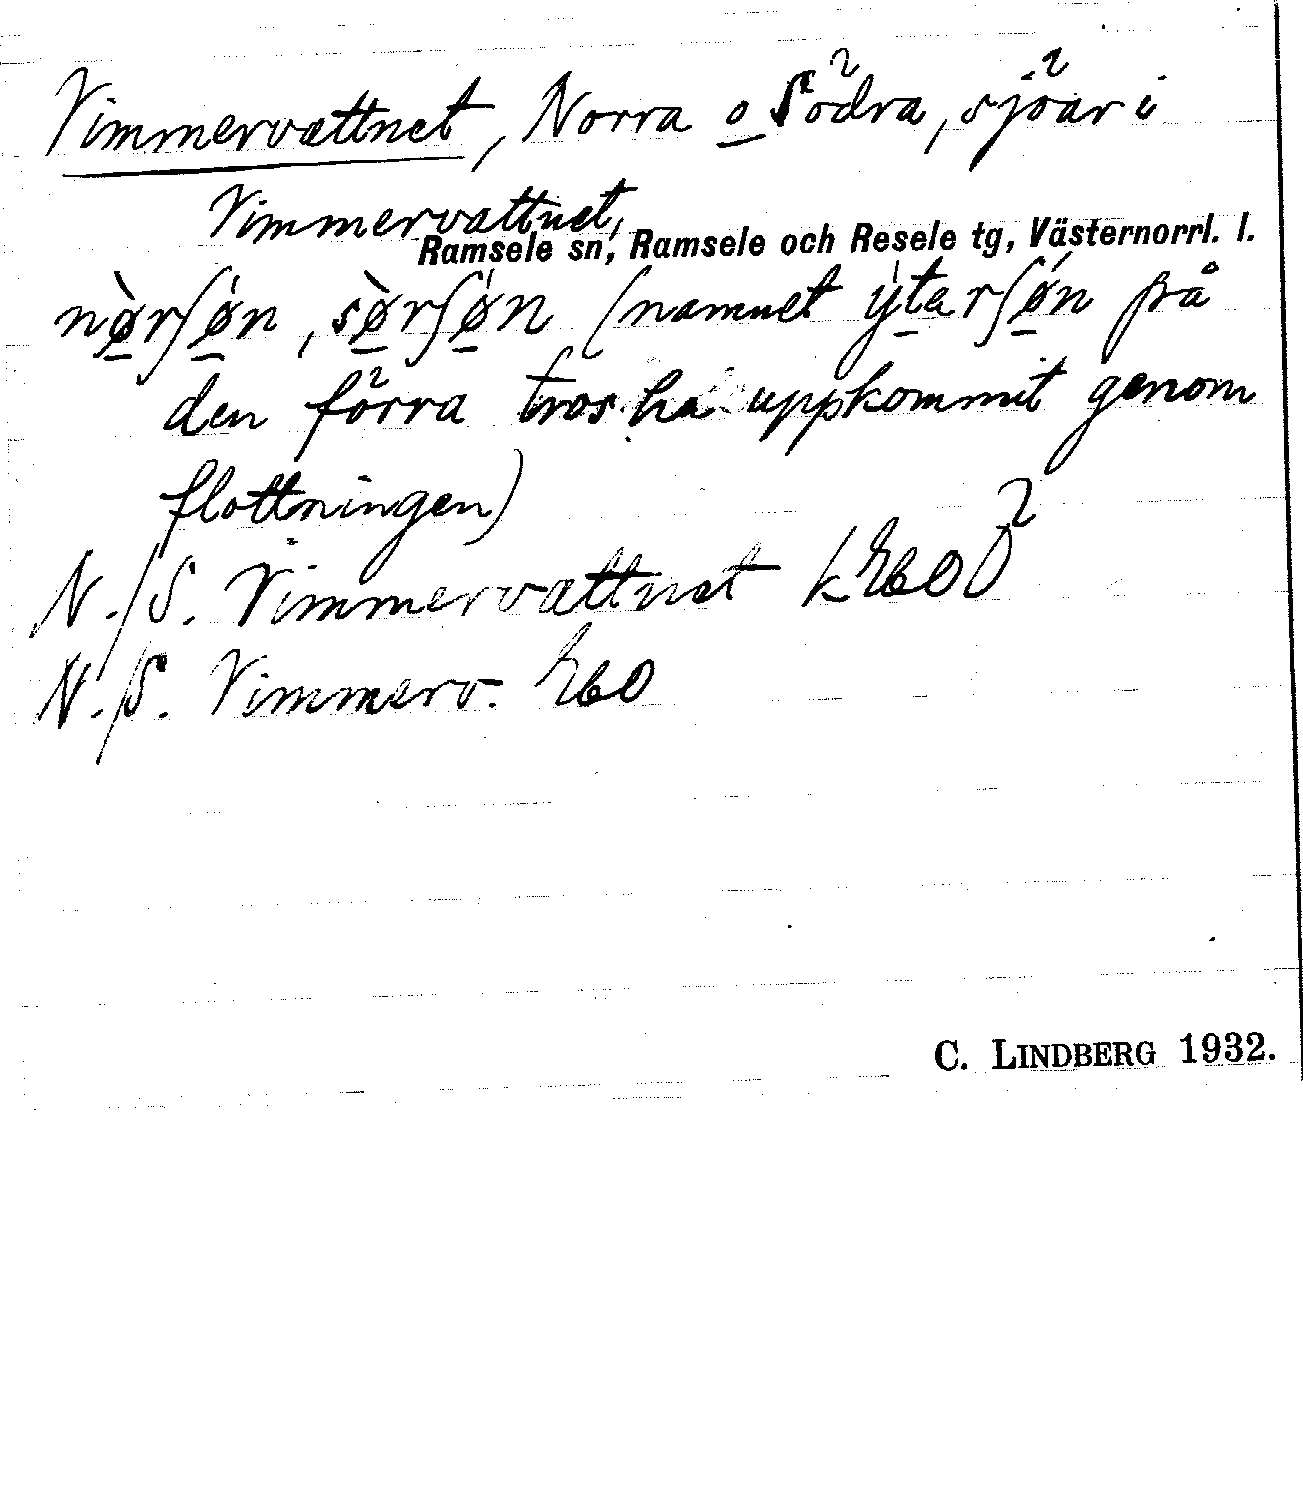 Vimmervattnet, Norra o Södra, sjöar i
Vimmervattnet,
Ramsele sn, Ramsele och Resele tg, Västernorrl. l.
nø̀rʃǿn, sø̀rʃǿn (namnet ýtarʃǿn på
den förra tros ha uppkommit genom
flottningen)
N./S. Vimmervattnet
N./S. Vimmerv.
C. LINDBERG 1932.